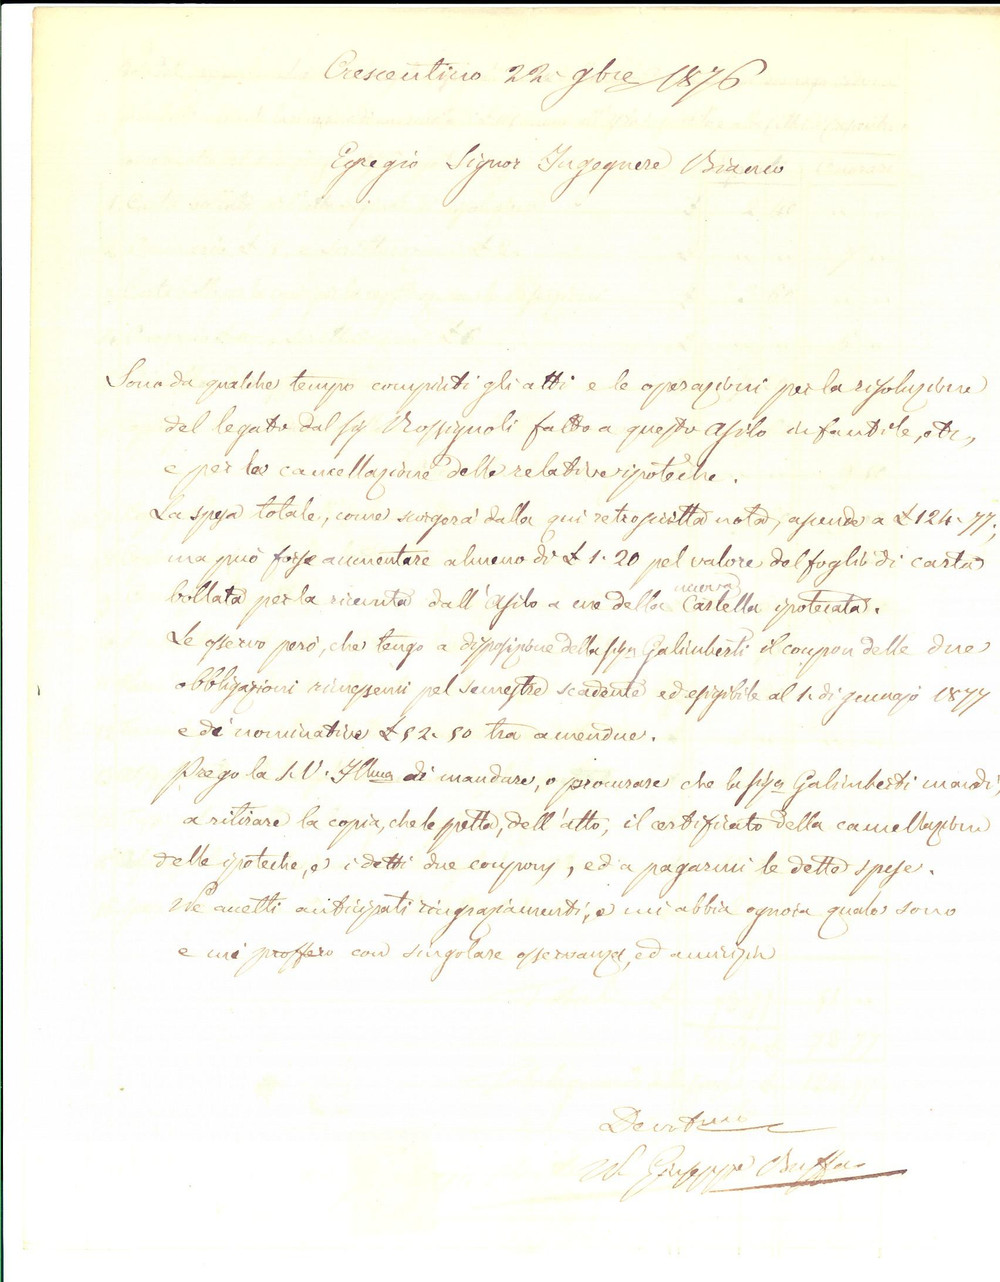 Crescentino 22 9bre 1876
Egregio Signor Ingegnere Bianco
Sono da qualche tempo compiuti gli atti e le operazioni per la risoluzione
del legato dal Sig Rossignoli fatto a questo Asilo infantile, etc,
e per la cancellazione delle relative ipoteche.
La spesa totale, come surgerà dalla qui retroscritta nota, ascende a £ 124. 77;
ma può forse aumentare almeno di £ 1. 20 pel valore del foglio di carta
bollata per la ricevuta dall'Asilo a me della nuova Cartella ipotecata.
Le osservo però, che tengo a disposizione della Sigra Galimberti il coupon delle due
obbligazioni rimessemi pel semestre scadente ed esigibile al 1. di gennajo 1877
e di nominative £ 52. 50 tra amendue.
Prego la S. V. Illma di mandare, o procurare che la Sigra Galimberti mandi,
a ritirare la copia, che le spetta, dell'atto, il certificato della cancellazione
delle ipoteche, e i detti due coupons, ed a pagarmi le dette spese.
Ne accetti anticipati ringraziamenti, e mi abbia ognora quale sono
e mi proffero con singolare osservanza, ed amicizia
Devotmo
Giuseppe Buffa